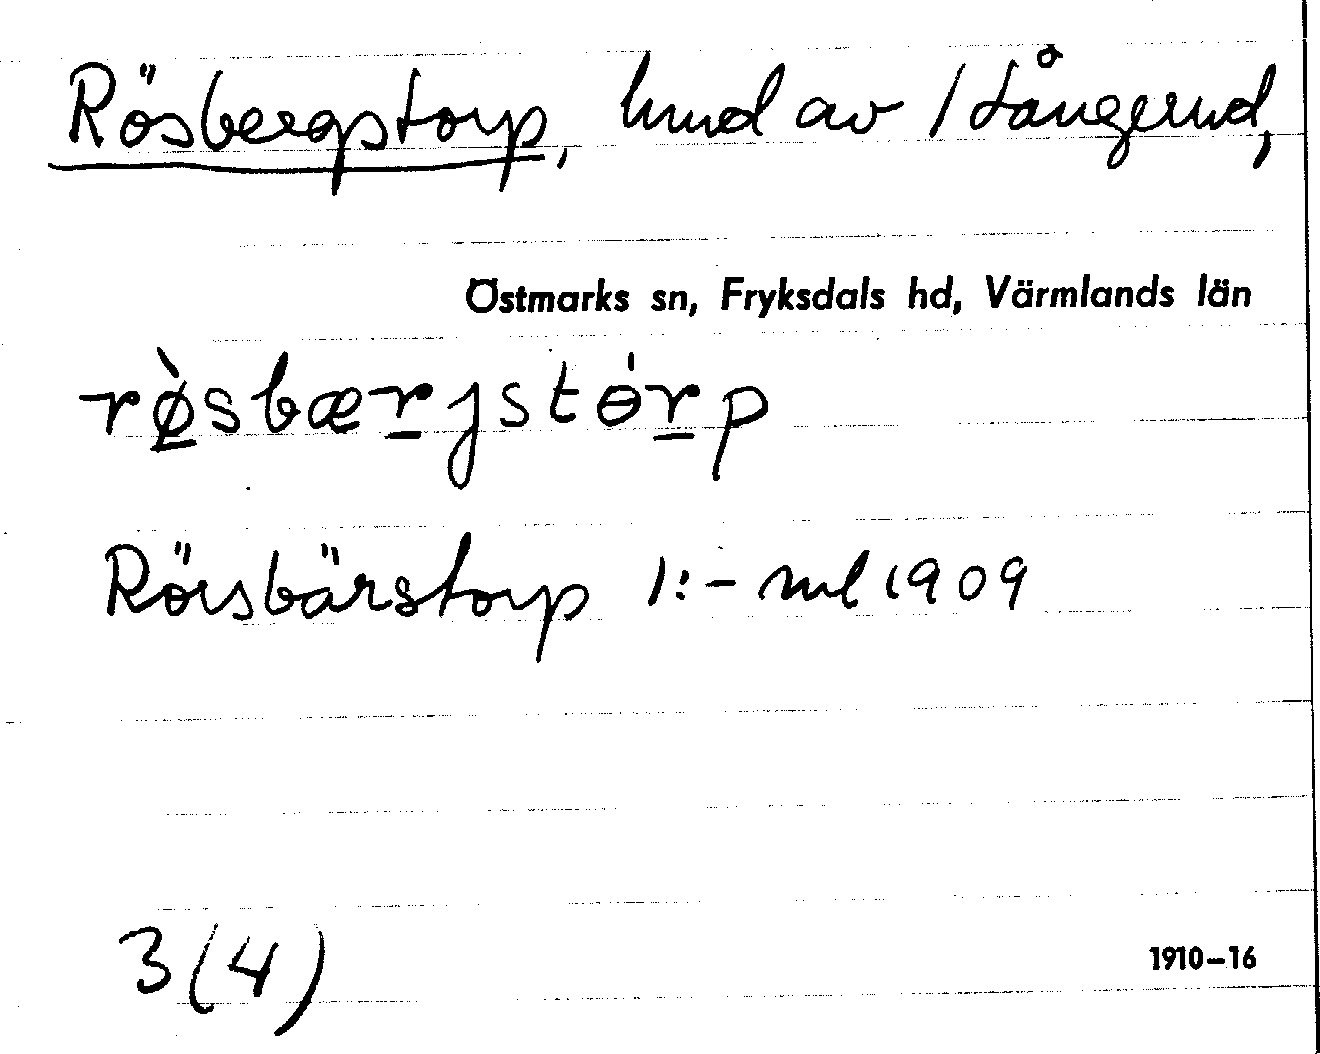 Rösbergstorp, hmd av 1 Långerud,
Östmarks sn, Fryksdals hd, Värmlands län
rø̀sbærjstórp
Rörsbärstorp 1:- ml 1909
3(4)
1910–16